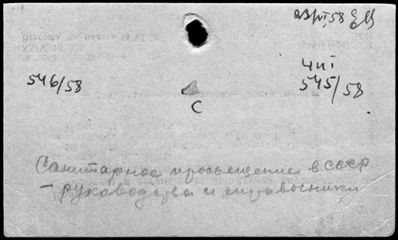 23/VI 58
ЧПІ
546/58
545/58
С
Санитарное просвещение в СССР
– руководства и справочники